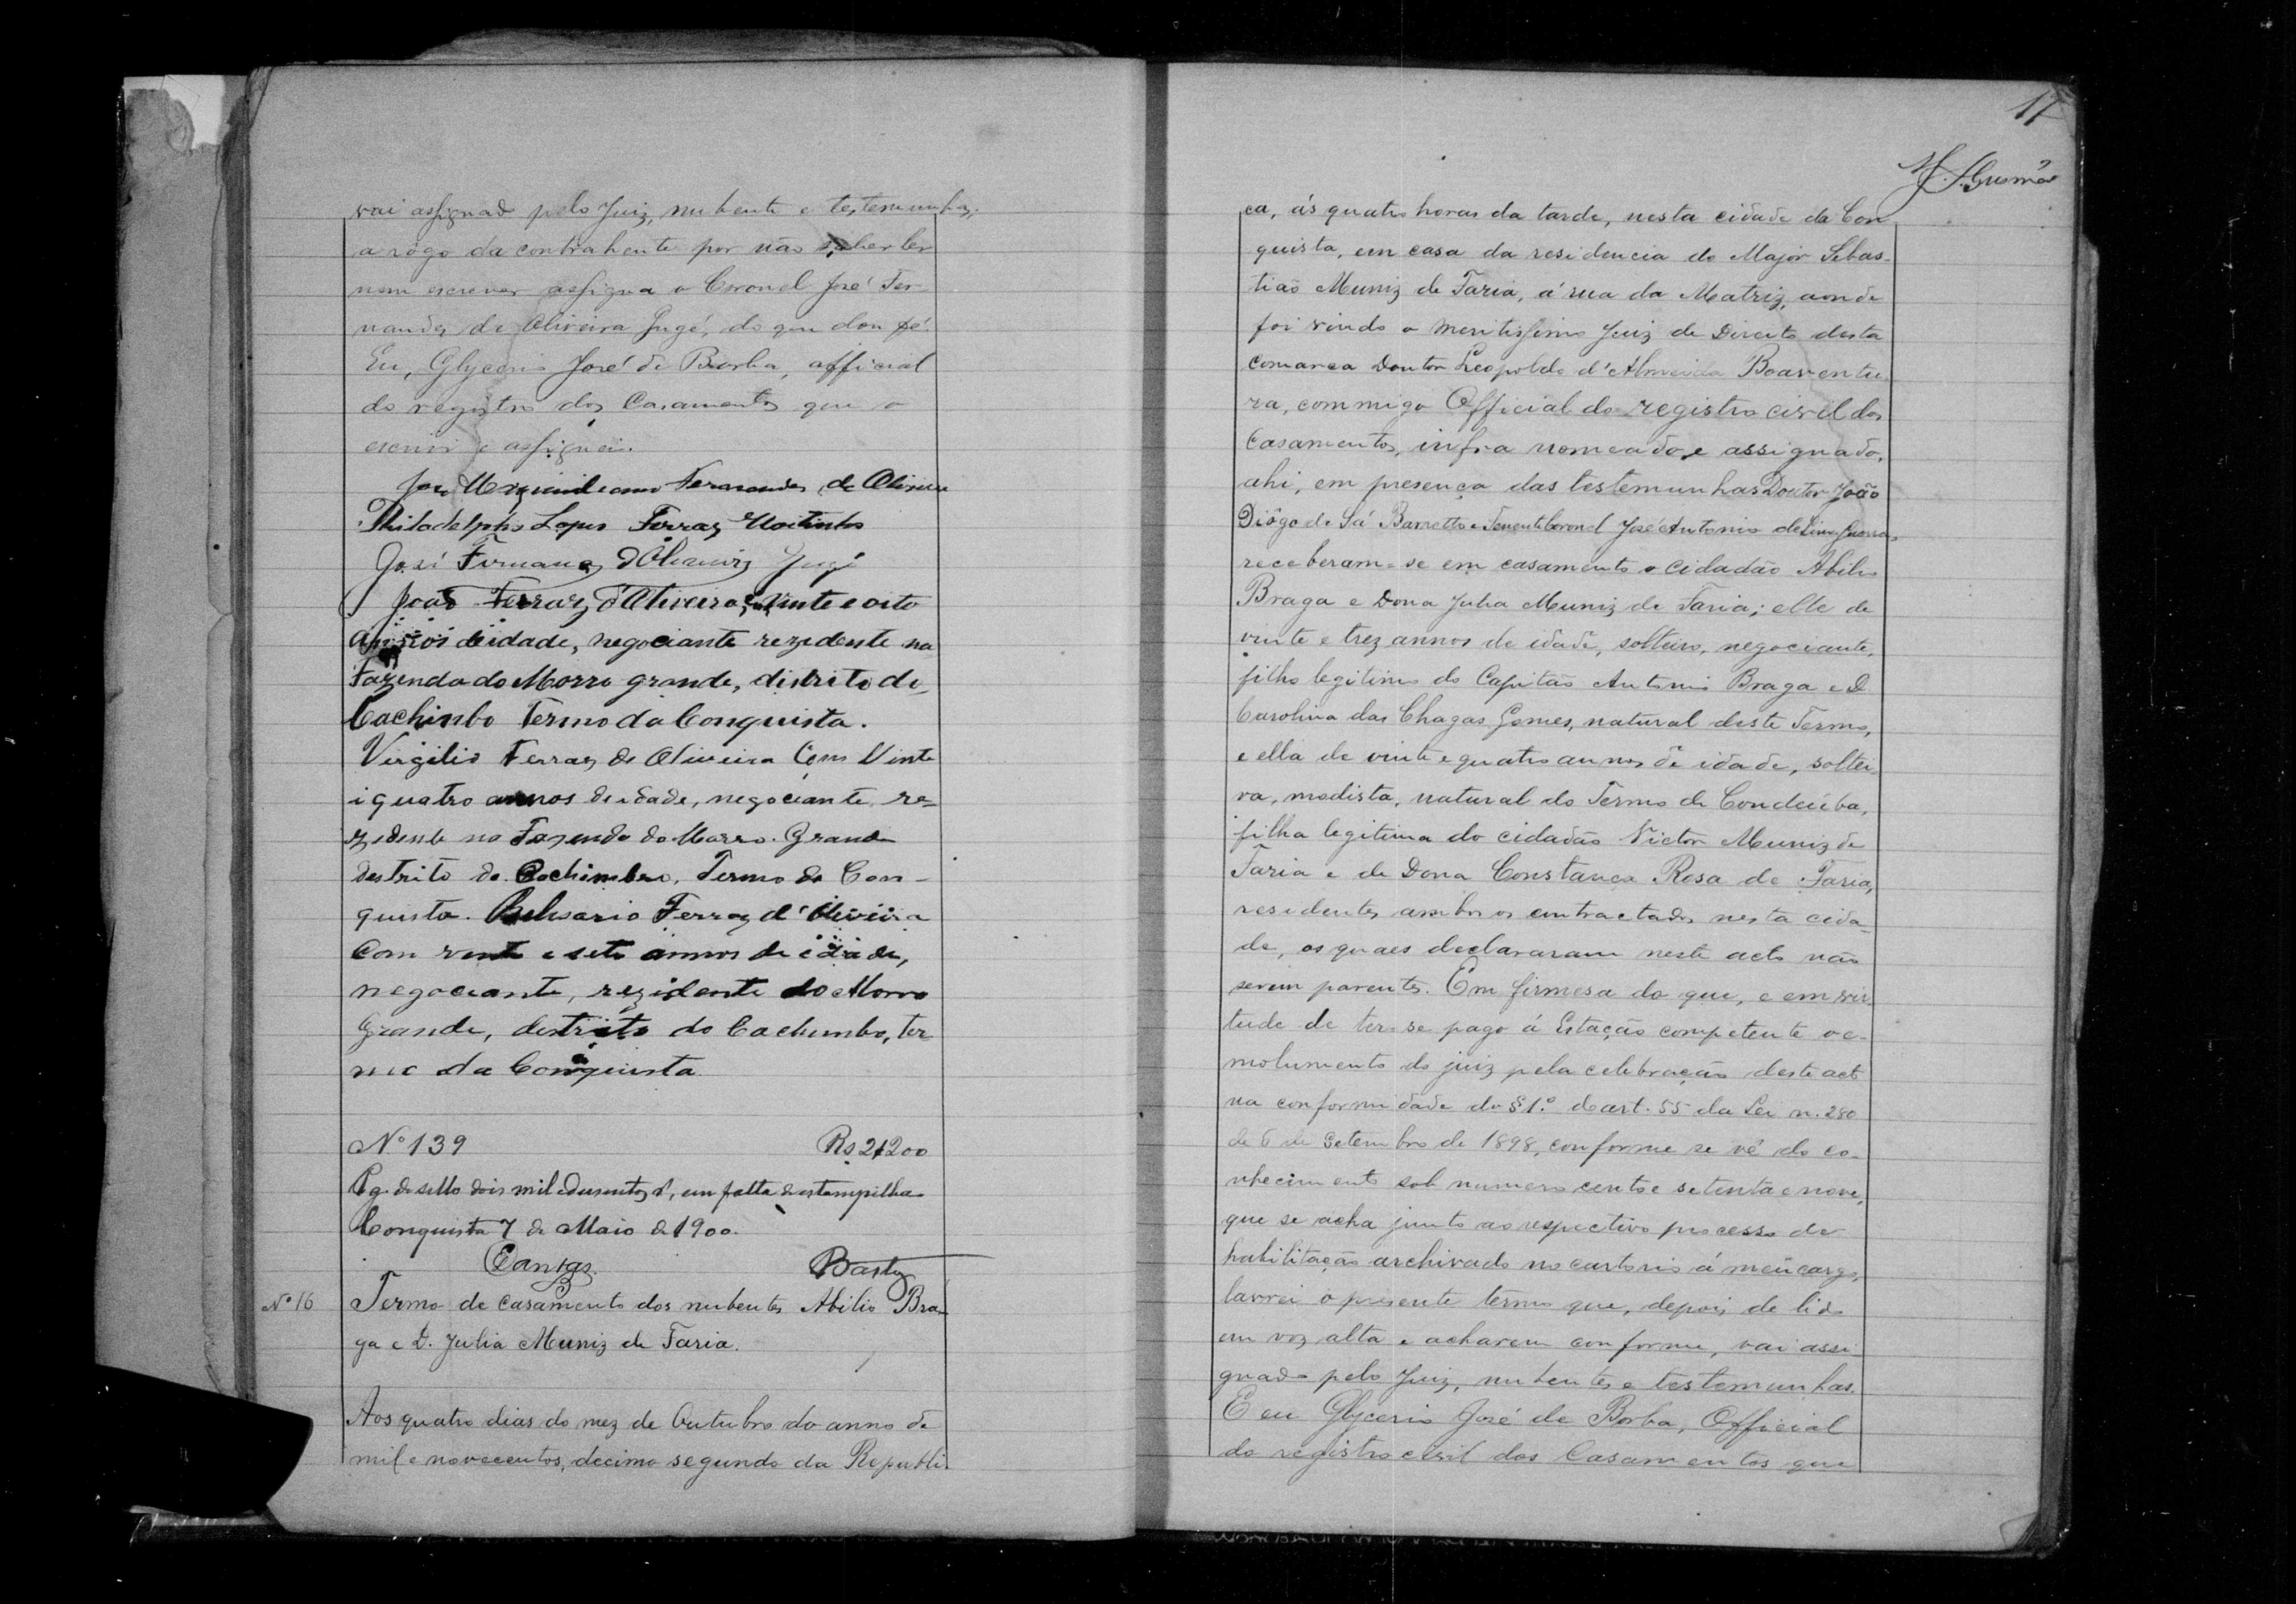 vai assignado pelo Juiz, nubente e testemunhas,
a rôgo da contrahente por não saber ler
nem escrever assigna o Coronel José Fer-
nandes de Oliveira Gugé, do que dou fé.
Eu, Glycerio José de Borba, official
do registro dos Casamentos que o
escrivi e assignei.
José Maximileano Fernandes de Oliveira
Philadelpho Lopes Ferraz Moitinho
José Fernandes d'Oliveira Gugé
João Ferraz d'Oliveira, vinte e oito
annos de idade, negociante rezedente na
Fazenda do Morro grande, distrito de
Cachimbo Termo da Conquista.
Virgilio Ferraz de Oliveira Com Vinte
i quatro annos de idade, negociante, re-
zidente na Fazenda do Morro Grande
destrito do Cachimbo, Termo da Con-
quista. Belisario Ferraz d'Oliveira
Com vente e sete annos de idade,
negociante, rezidente do Morro
Grande, destrito do Cachimbo, ter-
mo da Conquista.
Nº 139 Rs 2$200
Pg. de sello dois mil e dusentos rs, em falta de estampilha
Conquista 7 de Maio de 1900.
Bastos
Nº 16 Termo de Casamento dos nubentes Abilio Bra-
ga e D. Julia Muniz de Faria.
Aos quatro dias do mez de Outubro do anno de
mil e novecentos, decimo segundo da Republi-
17
Gusmão
ca, ás quatro horas da tarde, nesta cidade da Con-
quista, em casa da residencia do Major Sebas-
tião Muniz de Faria, á rua da Matriz, aonde
foi vindo o meritissimo Juiz de Direito desta
comarca Doutor Leopoldo d'Almeida Boaventu-
ra, commigo Official do registro civil dos
Casamentos, infra nomeado e assignado,
ahi, em presença das testemunhas Doutor João
Diôgo de Sá Barretto e Tenente Coronel José Antonio de Lima Guerra,
receberam-se em casamento o cidadão Abilio
Braga e Dona Julia Muniz de Faria; elle de
vinte e trez annos de idade, solteiro, negociante,
filho legitimo do Capitão Antonio Braga e D.
Carolina das Chagas Gomes, natural deste Termo,
e ella de vinte e quatro annos de idade, soltei-
ra, modista, natural do Termo de Condeúba,
filha legitima do cidadão Victor Muniz de
Faria e de Dona Constança Rosa de Faria,
residentes ambos os contractados nesta cida-
de, os quaes declararam neste acto não
serem parentes. Em firmesa do que, e em vir-
tude de ter-se pago á Estação competente o e-
molumento do juiz pela celebração deste acto
na conformidade do § 1.º do art. 55 da Lei n. 280
de 6 de Setembro de 1898, conforme se vê do co-
nhecimento sob numero cento e setenta e nove,
que se acha junto ao respectivo processo de
habilitação archivado no cartorio á meu cargo,
lavrei o presente termo que, depois de lido
em voz alta e acharem conforme, vai assi-
gnado pelo Juiz, nubentes e testemunhas.
E eu Glycerio José de Borba, Official
do registro civil dos Casamentos que